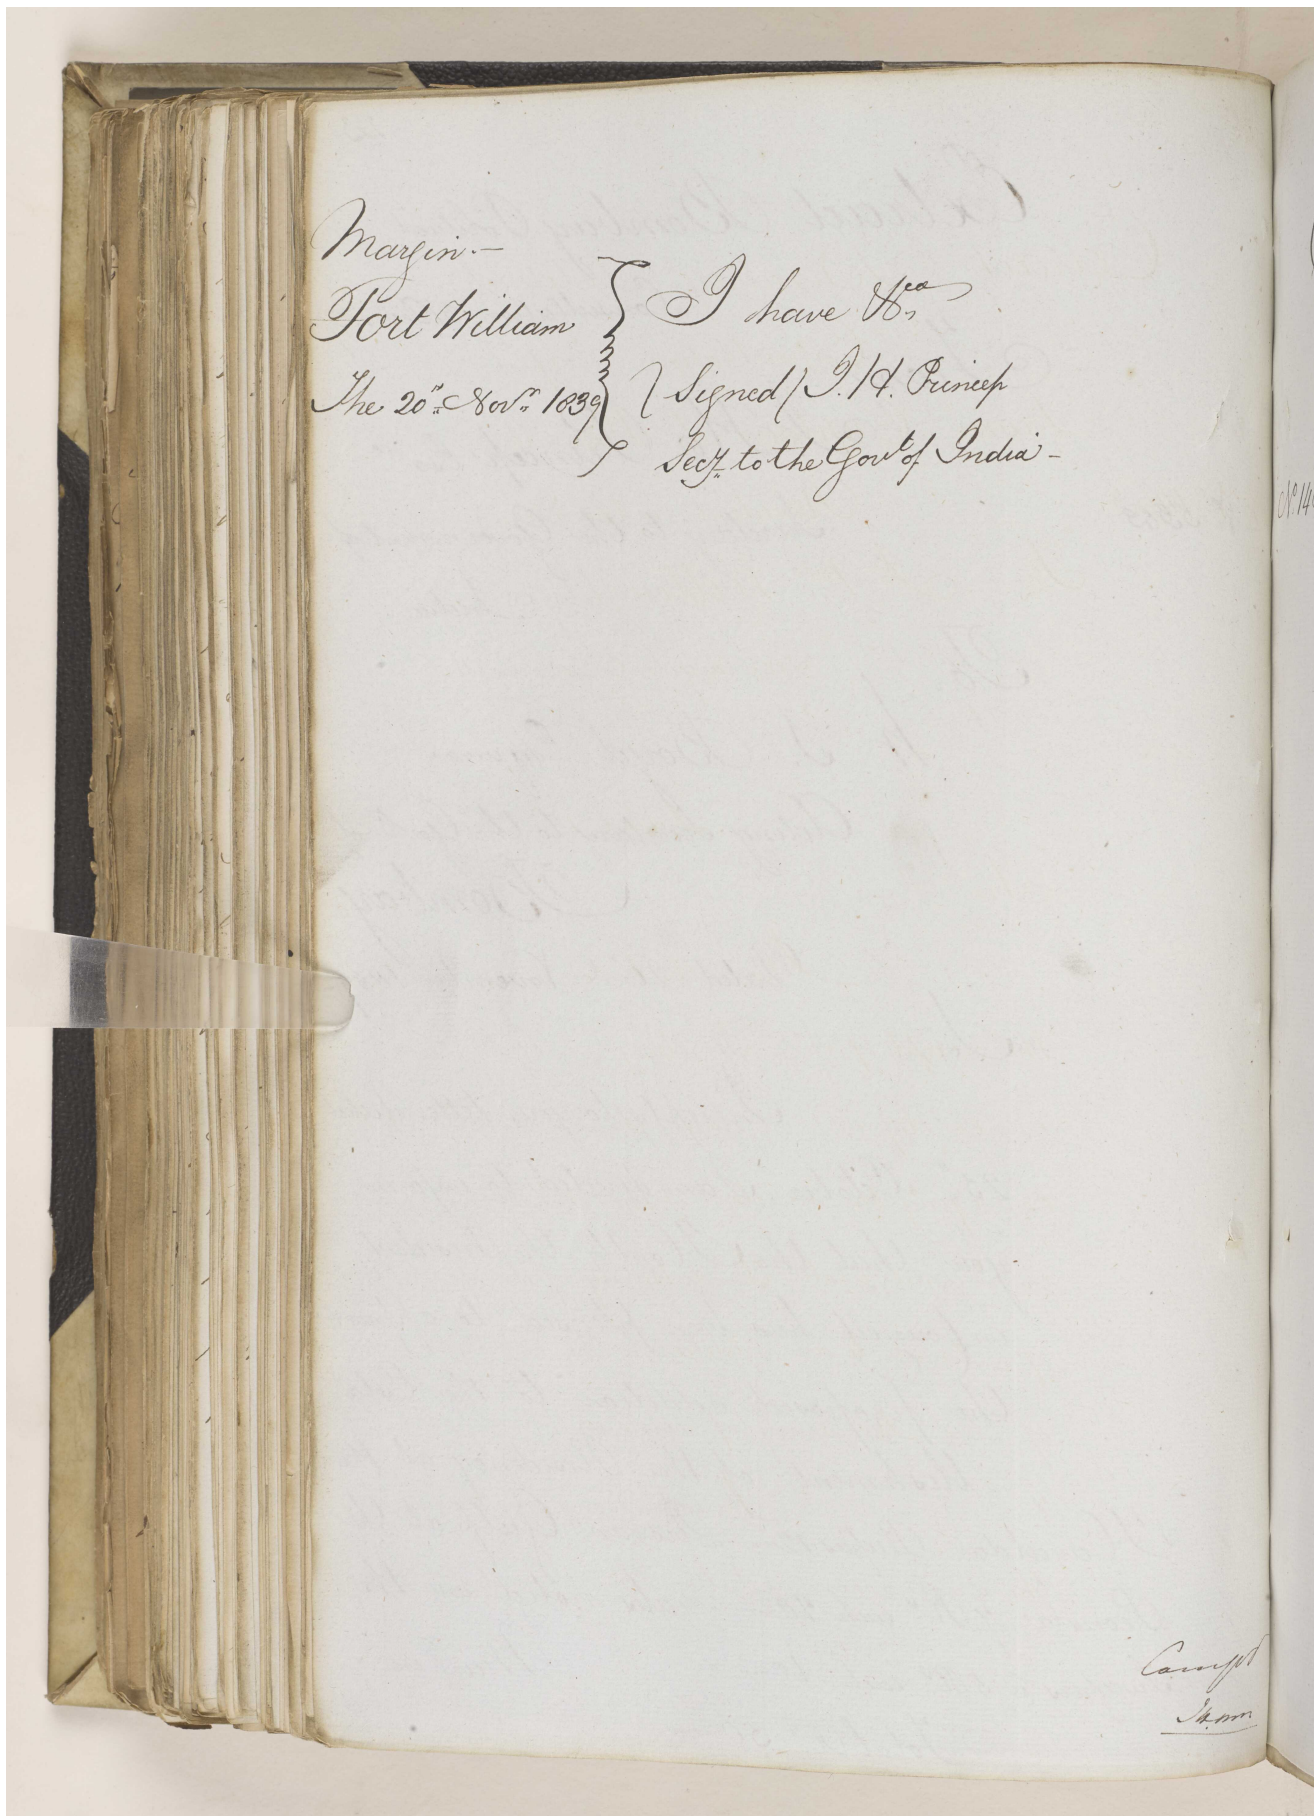 Margin.—
Fort William
The 20th Novr. 1839
I have &ca
(Signed) I. H. Prinsep
Secy. to the Govt of India –
No. 14
Compd